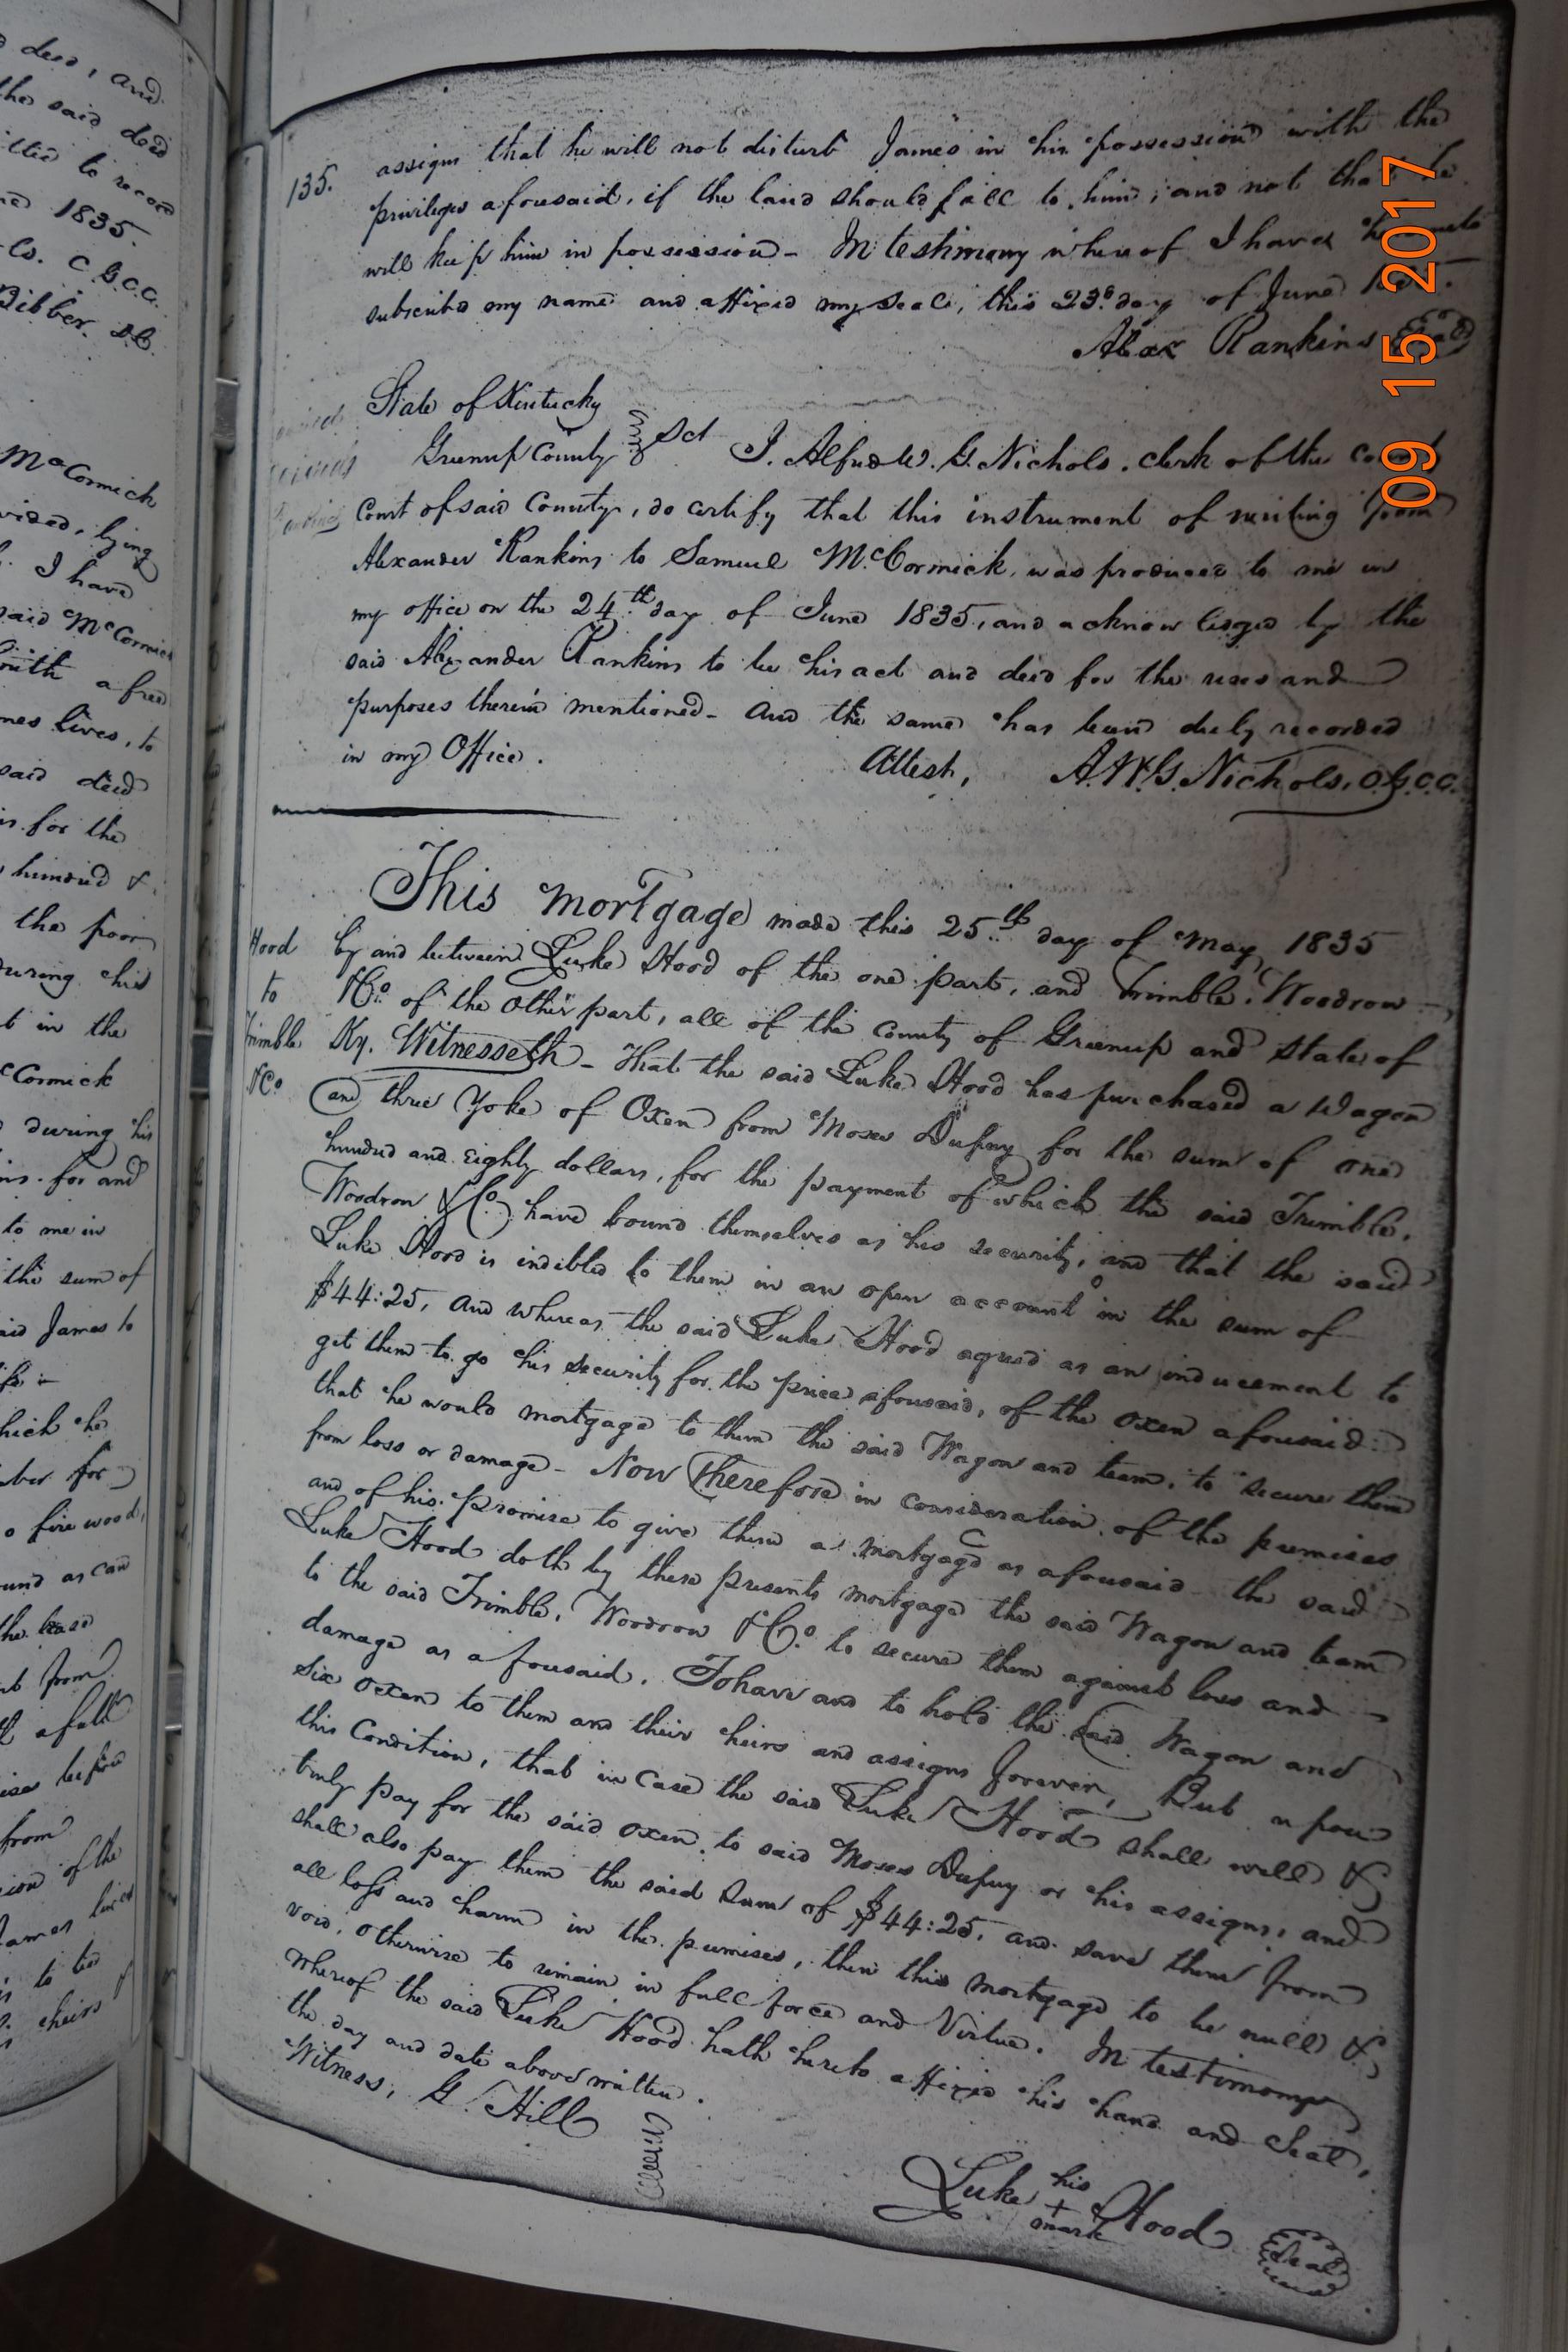 deed, and
the said deed
to record
1835.
Co. C G.C.C.
Bibber. D.C.
McCormick
lying
I have
said McCormick
South a free
lives, to
said deed
for the
hundred &
the poor
during his
in the
McCormick
during his
for and
to me in
the sum of
said James to
which he
for
fire wood,
as can
the lease
from
a full
before
from
of the
James lives
to the
heirs &
135.
assigns that he will not disturb James in his possession with the
privileges afousaid, if the land should fall to him, and not that he
will keep him in possession - In testimony whereof I have hereunto
subscribed my name and affixed my seal, this 23d day of June
Alex Rankins Seal
State of Kentucky
Greenup County Sct I. Alfred W. G. Nichols. clerk of the county
Court of said County, do certify that this instrument of writing from
Alexander Rankins to Samuel McCormick, was produced to me in
my office on the 24th day of June 1835, and acknowledged by the
said Alexander Rankins to be his act and deed for the uses and
purposes therein mentioned - And the same has been duly recorded
in my Office.
Attest, A.W.G. Nichols, C.G.C.C.
Hood
to
Trimble
&Co
This Mortgage made this 25th day of May 1835
by and between Luke Hood of the one part, and Trimble, Woodrow
&Co of the other part, all of the county of Greenup and State of
Ky. Witnesseth - That the said Luke Hood has purchased a Wagon
and three Yoke of Oxen from Moses Dupuy for the sum of one
hundred and Eighty dollars, for the payment of which the said Trimble,
Woodrow & Co have bound themselves as his security, and that the said
Luke Hood is indebted to them in an open account in the sum of
$44:25, and whereas the said Luke Hood agreed as an inducement to
get them to go his security for the price afousaid, of the oxen afousaid
that he would mortgage to them the said Wagon and team, to secure them
from loss or damage - Now Therefore in consideration of the premises
and of his promise to give them a mortgage as afousaid the said
Luke Hood doth by these presents mortgage the said Wagon and team
to the said Trimble, Woodrow & Co to secure them against loss and
damage as afousaid. To have and to hold the said Wagon and
Six oxen to them and their heirs and assigns forever, But upon
this Condition, that in Case the said Luke Hood shall well &
truly pay for the said oxen, to said Moses Dupuy or his assigns, and
shall also pay them the said Sum of $44:25, and save them from
all loss and harm in the premises, then this mortgage to be null &
void, otherwise to remain in full force and Virtue. In testimony
whereof the said Luke Hood hath hereto affixed his hand and Seal,
the day and date above written.
Witness, G. Hill
Luke his + mark Hood Seal
09 15 2017